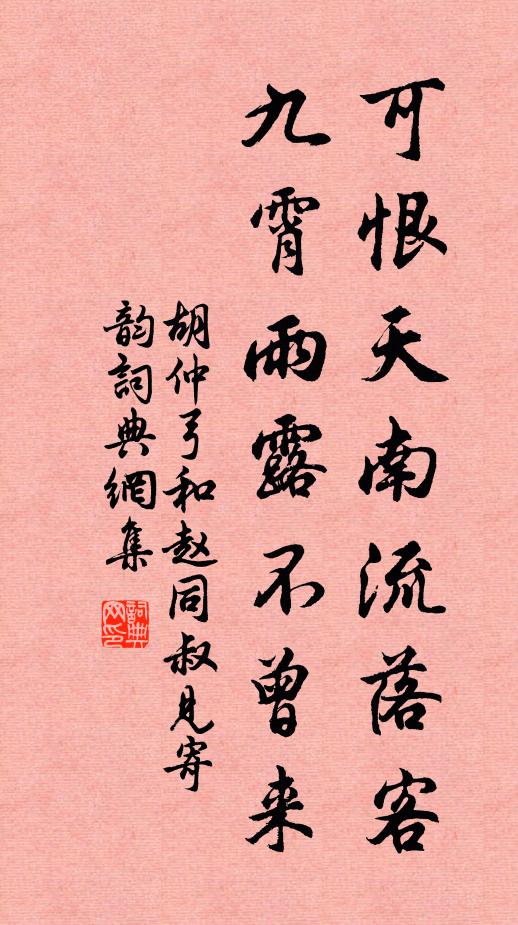 可恨天南流落客
九霄雨露不曾来
胡仲弓和赵同叔見寄
韵詞典網集
詞典網印